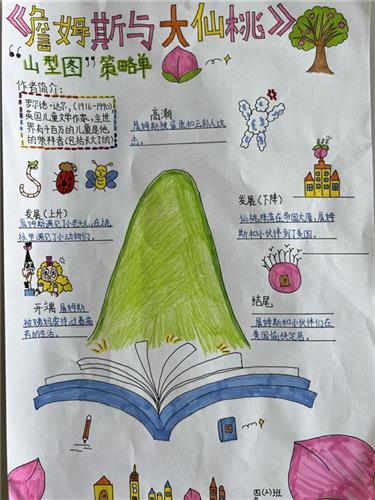 《詹姆斯与大仙桃》
"山型图"策略单
作者简介:
罗尔德·达尔,(1916-1990)
英国儿童文学作家,全世
界有千百万的儿童是他
的崇拜者(包括长大了的)
高潮
詹姆斯被鲨鱼和云彩人攻
击。
发展(上升)
詹姆斯遇见了小老头,在桃
核里遇见了小动物们。
发展(下降)
仙桃降落在帝国大厦,詹姆
斯和小伙伴到了美国。
开端
詹姆斯
被姨妈虐待,过着悲
惨的生活。
结尾
詹姆斯和小伙伴们在
美国愉快定居。
四(2)班